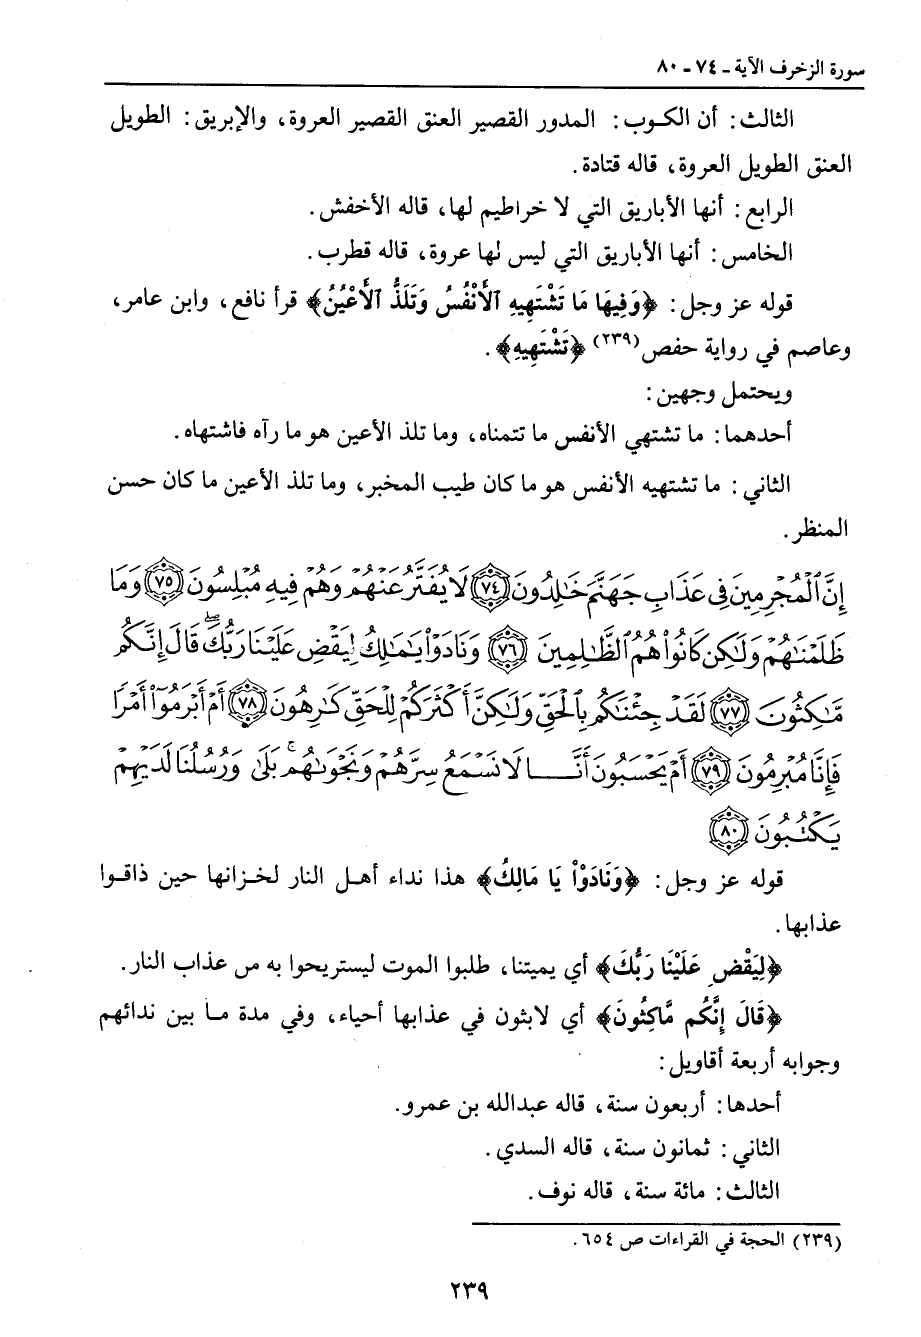 سورة الزخرف الآية ـ ٧٤ ـ ٨٠
الثالث : أن الكـوب : المدور القصير العنق القصير العروة ، والإبريق : الطويل
العنق الطويل العروة ، قاله قتادة .
الرابع : أنها الأباريق التي لا خراطيم لها ، قاله الأخفش .
الخامس : أنها الأباريق التي ليس لها عروة ، قاله قطرب .
قوله عز وجل : ﴿وَفِيهَا مَا تَشْتَهِيهِ ٱلْأَنْفُسُ وَتَلَذُّ ٱلْأَعْيُنُ﴾ قرأ نافع ، وابن عامر ،
وعاصم في رواية حفص(٢٣٩) ﴿تَشْتَهِيهِ﴾ .
ويحتمل وجهين :
أحدهما : ما تشتهي الأنفس ما تتمناه ، وما تلذ الأعين هو ما رآه فاشتهاه .
الثاني : ما تشتهيه الأنفس هو ما كان طيب المخبر ، وما تلذ الأعين ما كان حسن
المنظر .
إِنَّ ٱلْمُجْرِمِينَ فِى عَذَابِ جَهَنَّمَ خَٰلِدُونَ ﴿٧٤﴾ لَا يُفَتَّرُ عَنْهُمْ وَهُمْ فِيهِ مُبْلِسُونَ ﴿٧٥﴾ وَمَا
ظَلَمْنَٰهُمْ وَلَٰكِن كَانُوا۟ هُمُ ٱلظَّٰلِمِينَ ﴿٧٦﴾ وَنَادَوْا۟ يَٰمَٰلِكُ لِيَقْضِ عَلَيْنَا رَبُّكَ ۖ قَالَ إِنَّكُم
مَّٰكِثُونَ ﴿٧٧﴾ لَقَدْ جِئْنَٰكُم بِٱلْحَقِّ وَلَٰكِنَّ أَكْثَرَكُمْ لِلْحَقِّ كَٰرِهُونَ ﴿٧٨﴾ أَمْ أَبْرَمُوٓا۟ أَمْرًا
فَإِنَّا مُبْرِمُونَ ﴿٧٩﴾ أَمْ يَحْسَبُونَ أَنَّا لَا نَسْمَعُ سِرَّهُمْ وَنَجْوَىٰهُم ۚ بَلَىٰ وَرُسُلُنَا لَدَيْهِمْ
يَكْتُبُونَ ﴿٨٠﴾
قوله عز وجل : ﴿وَنَادَوْاْ يَا مَالِكُ﴾ هذا نداء أهـل النار لخـزانها حين ذاقـوا
عذابها .
﴿لِيَقْضِ عَلَيْنَا رَبُّكَ﴾ أي يميتنا ، طلبوا الموت ليستريحوا به من عذاب النار .
﴿قَالَ إِنَّكُم مَّاكِثُونَ﴾ أي لابثون في عذابها أحياء ، وفي مدة مـا بين ندائهم
وجوابه أربعة أقاويل :
أحدها : أربعون سنة ، قاله عبدالله بن عمرو .
الثاني : ثمانون سنة ، قاله السدي .
الثالث : مائة سنة ، قاله نوف .
(٢٣٩) الحجة في القراءات ص ٦٥٤ .
٢٣٩